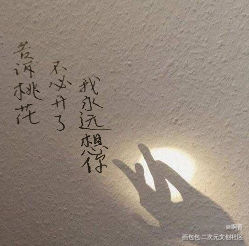 告诉桃花
不必开了
我永远想你
画包包-二次元文创社区